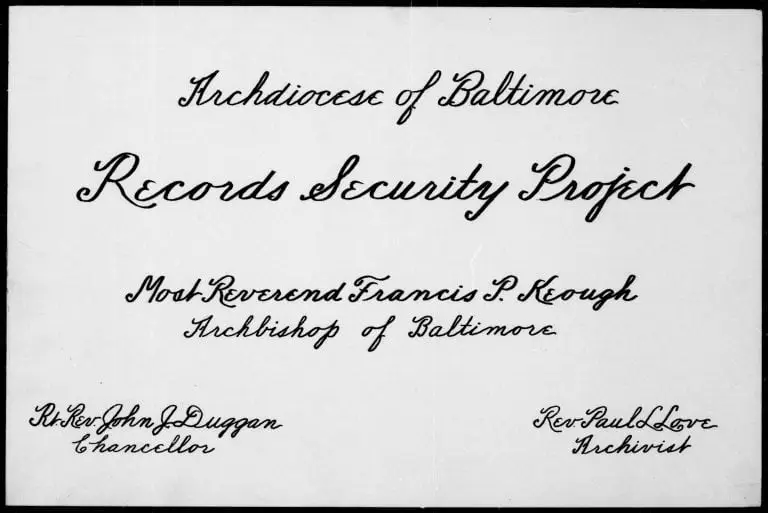 Archdiocese of Baltimore
Records Security Project
Most Reverend Francis P. Keough
Archbishop of Baltimore
Rt. Rev. John J. Duggan
Chancellor
Rev. Paul L Love
Archivist